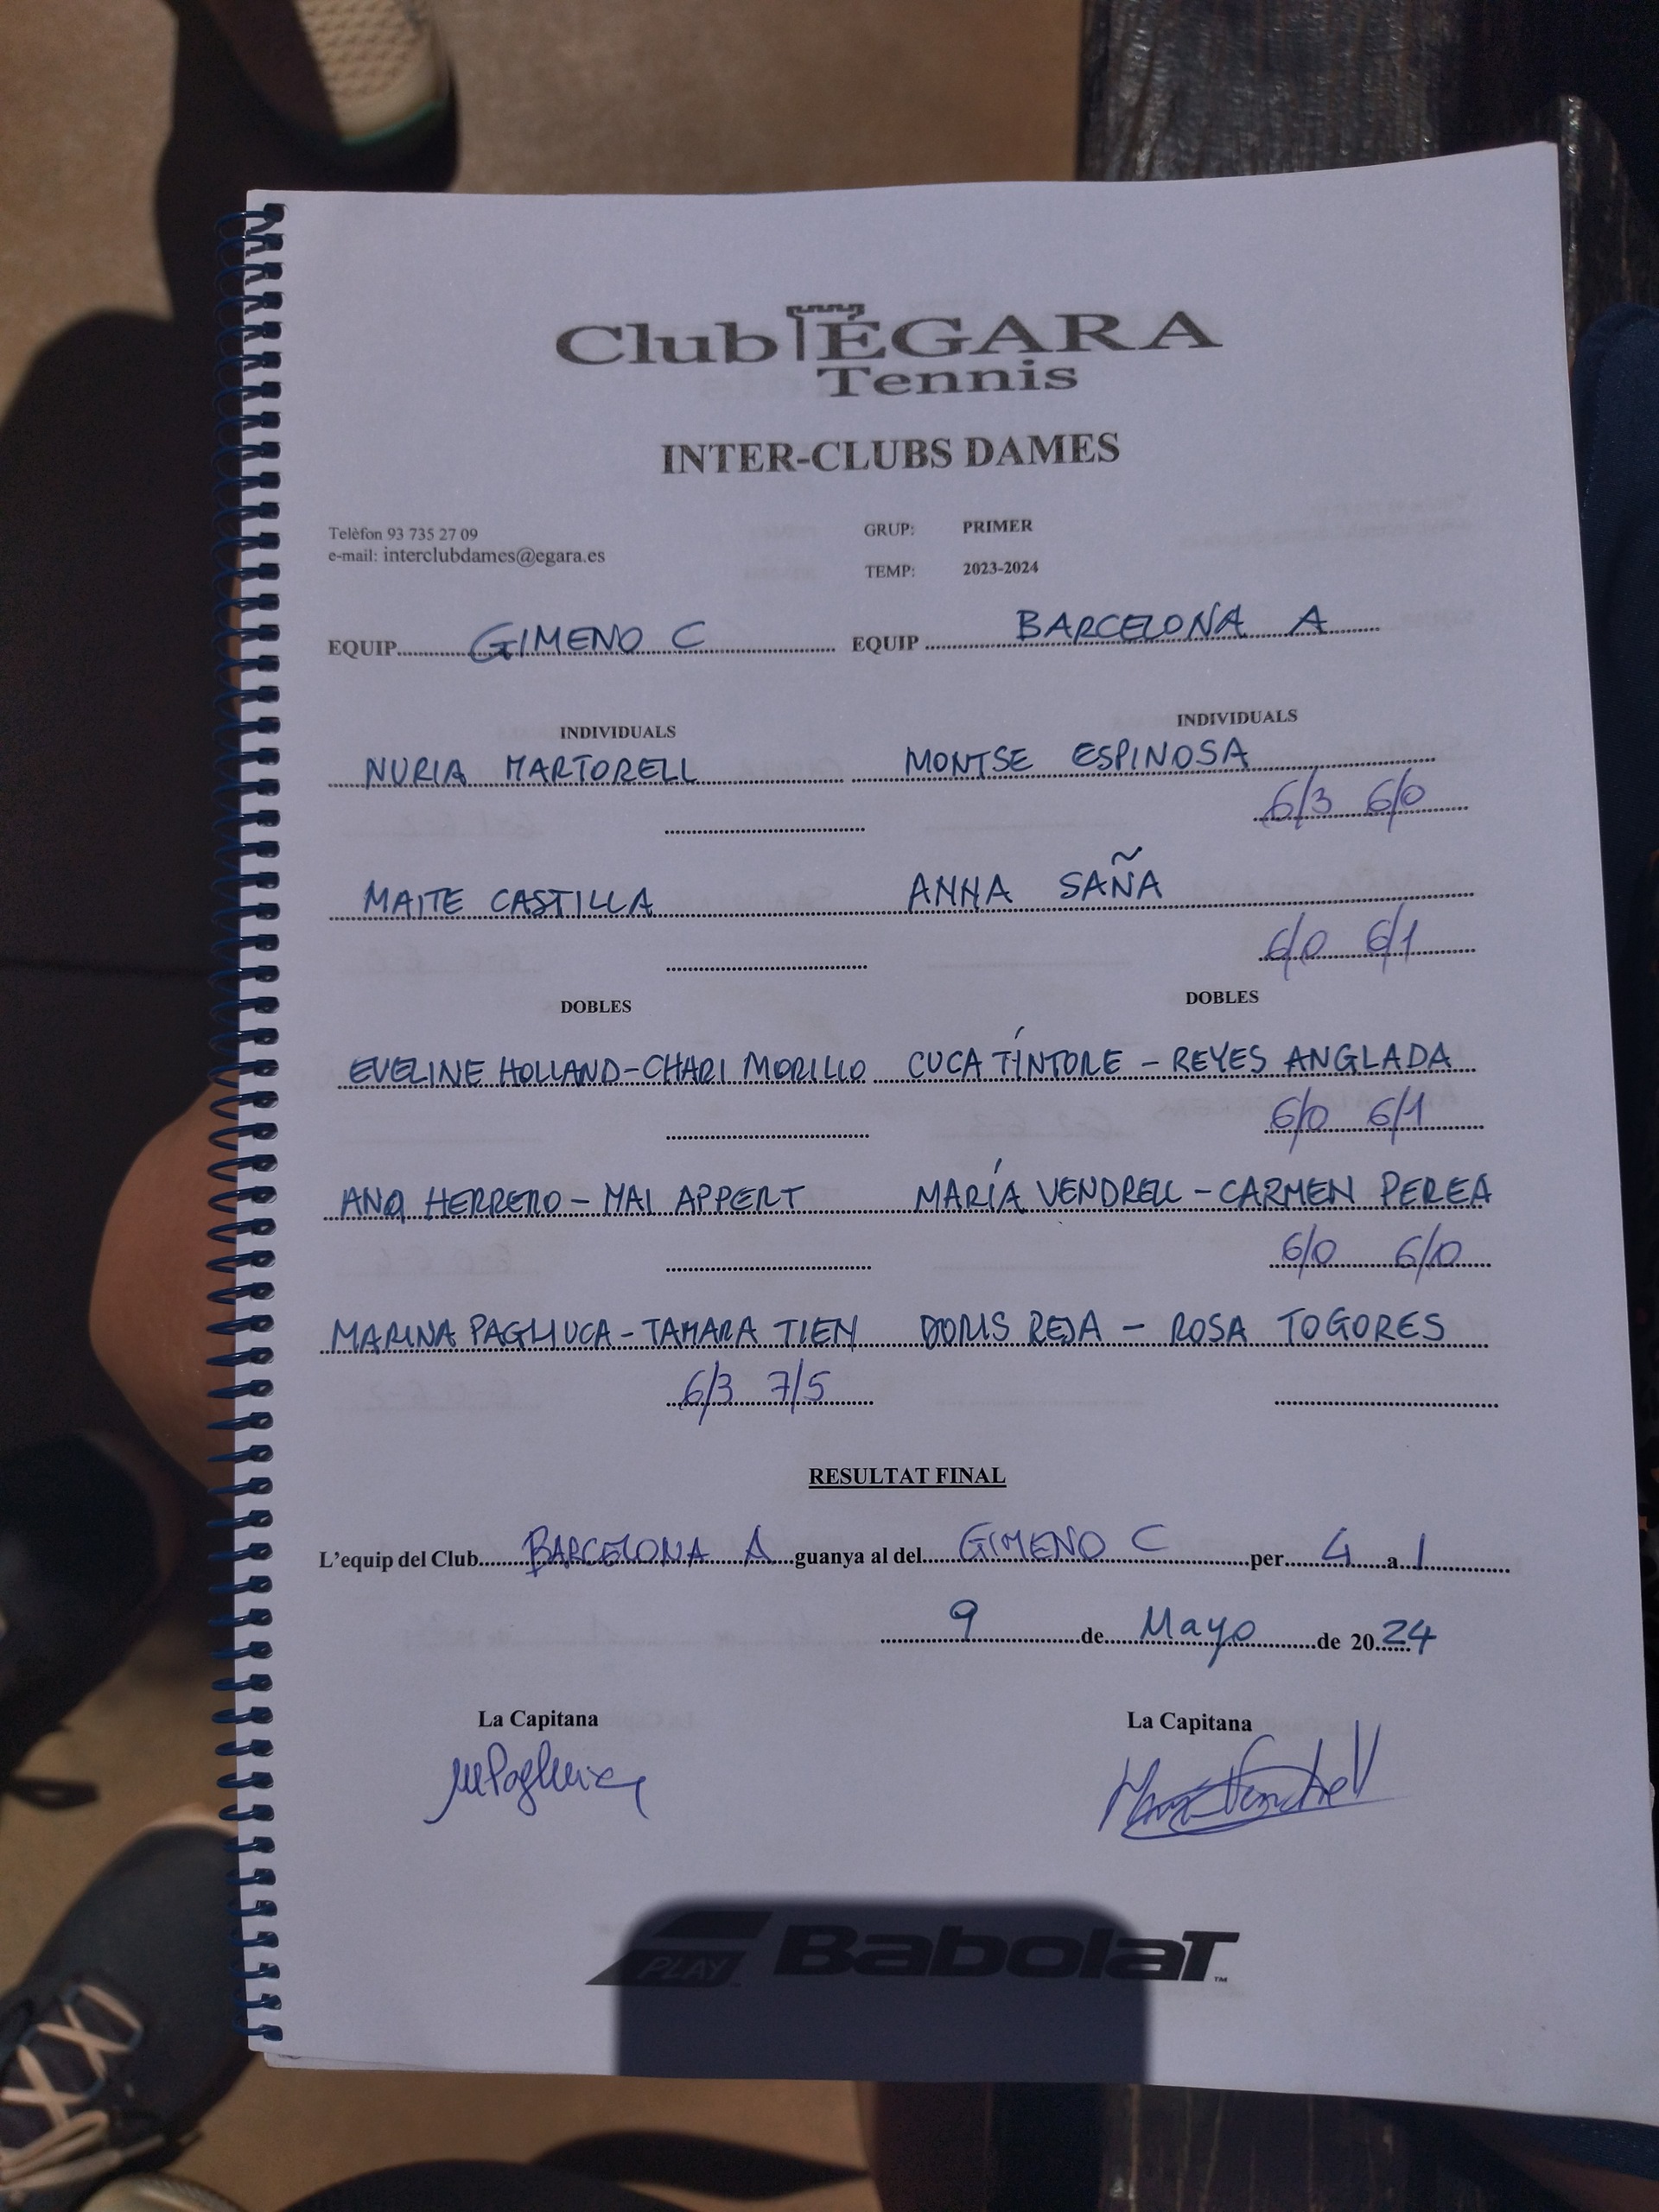 Club EGARA
Tennis
INTER-CLUBS DAMES
Telèfon 93 735 27 09 GRUP: PRIMER
e-mail: interclubdames@egara.es
TEMP: 2023-2024
EQUIP GIMENO C EQUIP BARCELONA A
INDIVIDUALS INDIVIDUALS
NURIA MARTORELL MONTSE ESPINOSA
6/3 6/0
MAITE CASTILLA ANNA SAÑA
6/0 6/1
DOBLES DOBLES
EVELINE HOLLAND-CHARI MORILLO CUCA TÍNTORE - REYES ANGLADA
6/0 6/1
ANA HERRERO - MAI APPERT MARÍA VENDRELL - CARMEN PEREA
6/0 6/0
MARINA PAGLIUCA - TAMARA TIEN DORIS REJA - ROSA TOGORES
6/3 7/5
RESULTAT FINAL
L'equip del Club BARCELONA A guanya al del GIMENO C per 4 a 1
9 de Mayo de 2024
La Capitana La Capitana
MPagliuca Maria Vendrell
PLAY BabolaT™